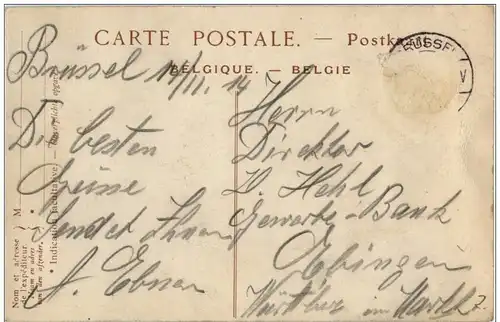 CARTE POSTALE. — Postkaart
BELGIQUE. — BELGIE
BRÜSSEL
Brüssel 14/11. 14
Die besten
Grüsse
sendet Ihnen
J. Ebner
Herrn
Direktor
D. Hehl
Gewerbe-Bank
Ebingen
Württbg
Nom et adresse } M
de l'expéditeur
Naam en adres
van den afzender
* Indication facultative) —